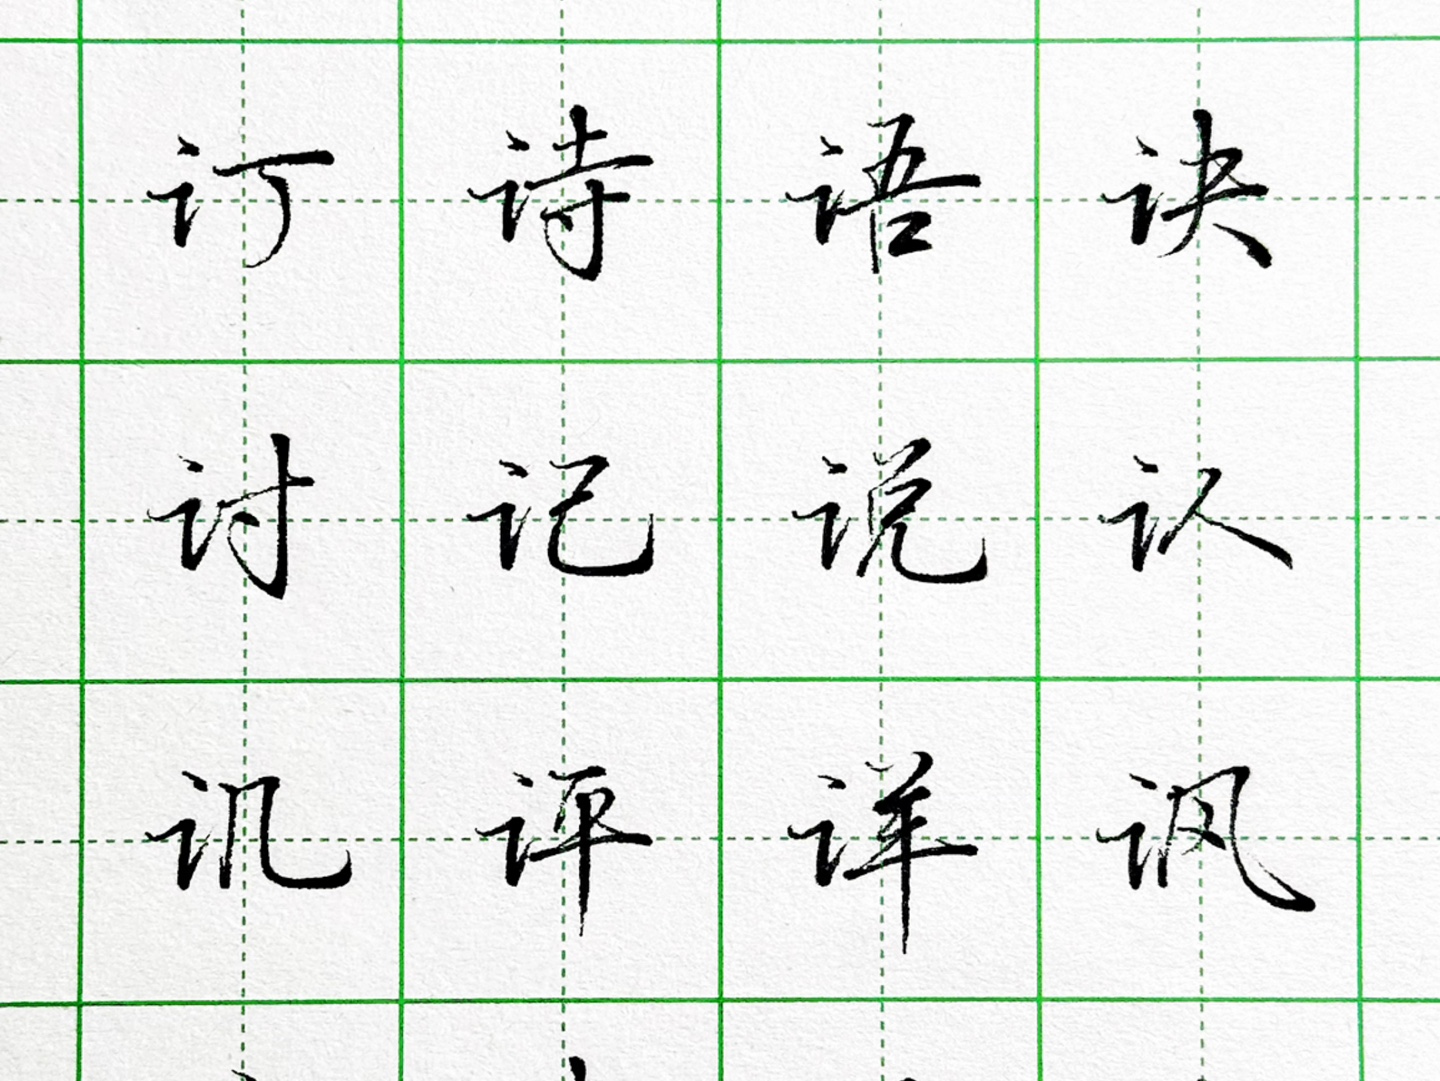 订诗语诀
讨记说认
讥评详讽